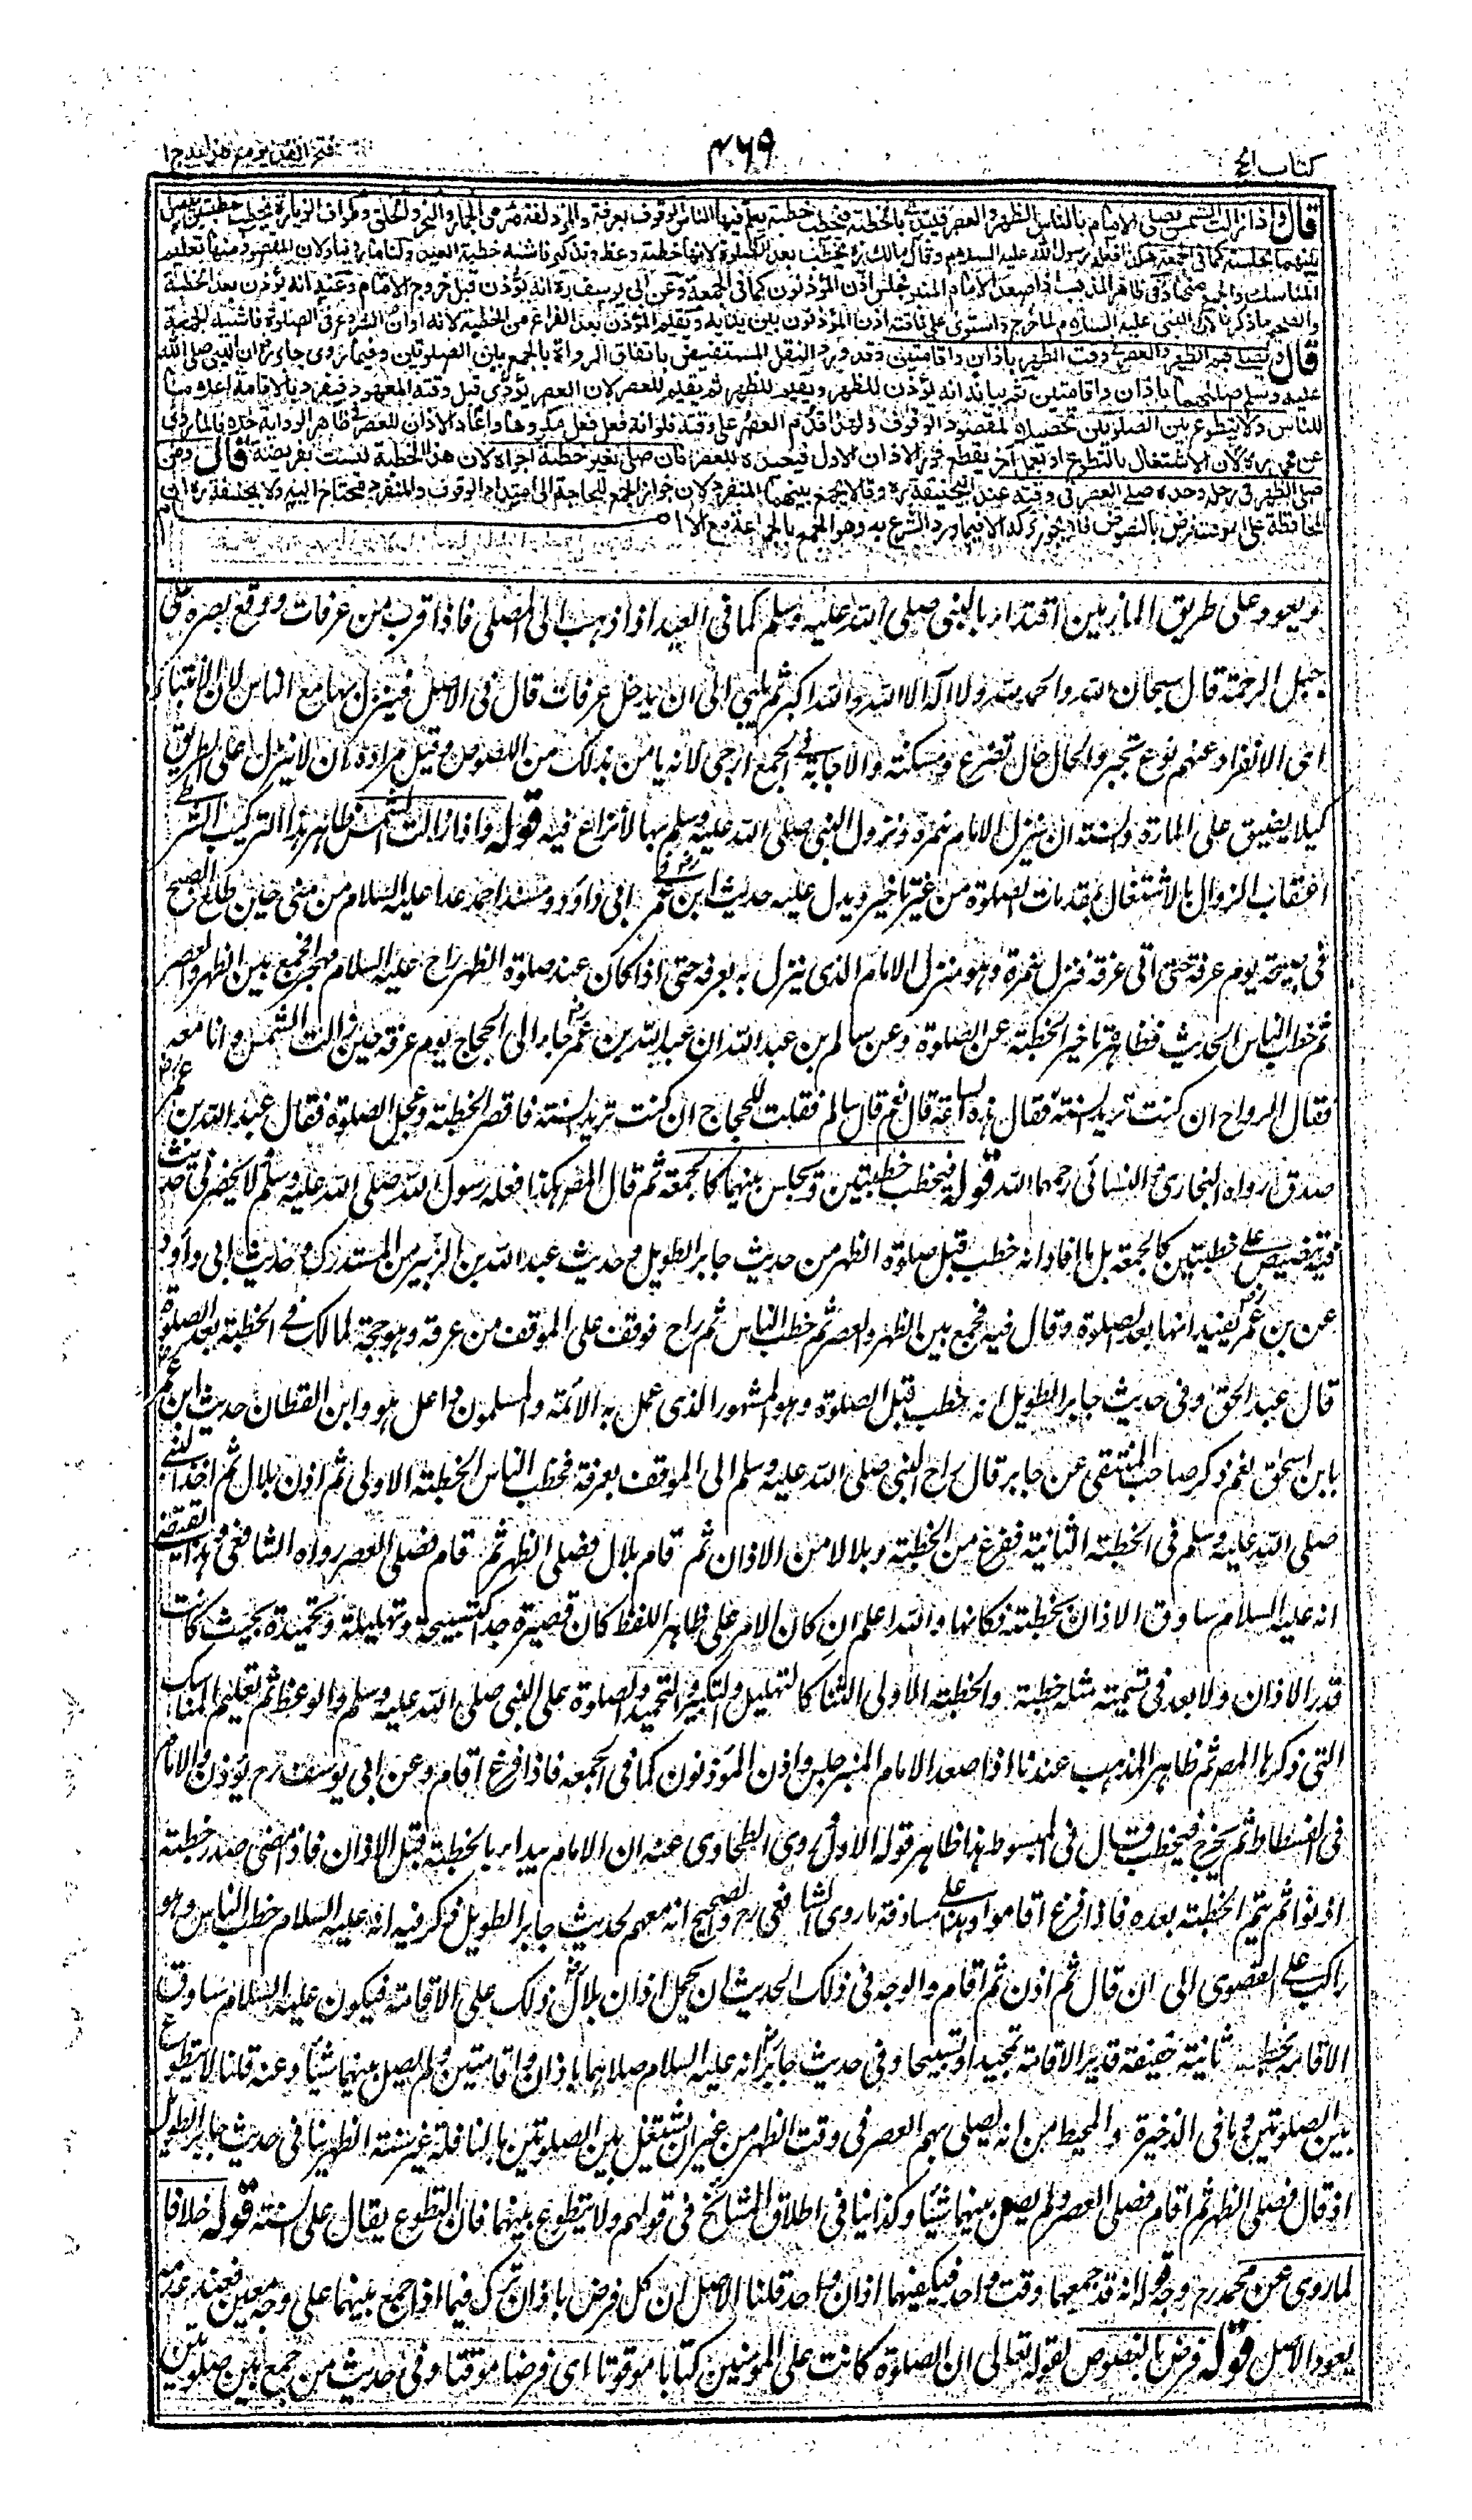 كتاب الحج
٤٦٩
فتح القدير مع هدايه ج ١
قال واذا زالت الشمس يصلى الامام بالناس الظهر والعصر فيبتدئ بالخطبة فيخطب خطبة يعلم فيها الناس الوقوف بعرفة والمزدلفة ورمى الجمار والنحر والحلق وطواف الزيارة يخطب خطبتين يفصل
بينهما بجلسة كما فى الجمعة هكذا فعله رسول الله عليه السلام وقال مالك ره يخطب بعد الصلوة لانها خطبة وعظ وتذكير فاشبه خطبة العيد ولنا ما روينا ولان المقصود منها تعليم
المناسك والجمع منها وفى ظاهر المذهب اذا صعد الامام المنبر فجلس اذن المؤذنون كما فى الجمعة وعن ابى يوسف ره انه يؤذن قبل خروج الامام وعنه انه يؤذن بعد الخطبة
والصحيح ما ذكرنا لان النبى عليه السلام لما خرج واستوى على ناقته اذن المؤذنون بين يديه ويقيم المؤذن بعد الفراغ من الخطبة لانه اوان الشروع فى الصلوة فاشبه الجمعة
قال ويصلى بهم الظهر والعصر فى وقت الظهر باذان واقامتين وقد ورد النقل المستفيض باتفاق الرواة بالجمع بين الصلوتين وفيما روى جابر ان النبى صلى الله
عليه وسلم صلاهما باذان واقامتين ثم بيانه انه يؤذن للظهر ويقيم للظهر ثم يقيم للعصر لان العصر يؤدى قبل وقته المعهود فيفرد بالاقامة اعلاما
للناس ولا يتطوع بين الصلوتين تحصيلا لمقصود الوقوف ولهذا قدم العصر على وقته فلو انه فعل فعل مكروها واعاد الاذان للعصر فى ظاهر الرواية خلافا لما روى
عن محمد ره لان الاشتغال بالتطوع او بعمل آخر يقطع فور الاذان الاول فيعيده للعصر فان صلى بغير خطبة اجزاه لان هذه الخطبة ليست بفريضة قال ومن
صلى الظهر فى رحله وحده صلى العصر فى وقته عند ابيحنيفة ره وقالا يجمع بينهما المنفرد لان جواز الجمع للحاجة الى امتداد الوقوف والمنفرد محتاج اليه ولابيحنيفة ره ان
المحافظة على الوقت فرض بالنصوص فلا يجوز تركه الا فيما ورد الشرع به وهو الجمع بالجماعة مع الا
ويعود على طريق المازمين اقتداء بالنبى صلى الله عليه وسلم كما فى العيد اذا ذهب الى المصلى فاذا قرب من عرفات ووقع بصره على
جبل الرحمة قال سبحان الله والحمد لله ولا اله الا الله والله اكبر ثم يلبي الى ان يدخل عرفات قال فى الاصل فينزل بها مع الناس لان الانتباذ
اى الانفراد عنهم نوع تجبر والحال حال تضرع ومسكنة والاجابة فى الجمع ارجى لانه يامن بذلك من اللصوص وقيل مراده ان لا ينزل على الطريق
كيلا يضيق على المارة والسنة ان ينزل الامام نمرة ونزول النبى صلى الله عليه وسلم بها لا نزاع فيه قوله واذا زالت الشمس ظاهر هذا التركيب الشرطى
اعقاب الزوال بالاشتغال بمقدمات الصلوة من غير تاخير ويدل عليه حديث ابن عمر فى ابى داؤد ومسند احمد غدا عليه السلام من منى حين طلع الصبح
فى صبيحة يوم عرفة حتى اتى عرفة فنزل نمرة وهو منزل الامام الذى ينزل به بعرفة حتى اذا كان عند صلوة الظهر راح عليه السلام مهجرا فجمع بين الظهر والعصر
ثم خطب الناس الحديث فظاهره تاخير الخطبة عن الصلوة وعن سالم بن عبد الله ان عبد الله بن عمر جاء الى الحجاج يوم عرفة حين زالت الشمس وانا معه
فقال الرواح ان كنت تريد السنة فقال هذه الساعة قال نعم قال سالم فقلت للحجاج ان كنت تريد السنة فاقصر الخطبة وعجل الصلوة فقال عبد الله بن عمر
صدق رواه البخارى والنسائى رحمهما الله قوله فيخطب خطبتين ويجلس بينهما كالجمعة ثم قال المص هكذا فعله رسول الله صلى الله عليه وسلم لا يحضرنى حديث
فيه تنصيص على خطبتين كالجمعة بل ما افاد انه خطب قبل صلوة الظهر من حديث جابر الطويل وحديث عبد الله بن الزبير من المستدرك وحديث ابى داؤد
عن ابن عمر يفيد انها بعد الصلوة وقال فيه فجمع بين الظهر والعصر ثم خطب الناس ثم راح فوقف على الموقف من عرفة وهو حجة لمالك فى الخطبة بعد الصلوة
قال عبد الحق وفى حديث جابر الطويل انه خطب قبل الصلوة وهو المشهور الذى عمل به الائمة والمسلمون واعل هو وابن القطان حديث ابن عمر
بابن اسحق نعم ذكر صاحب المنتقى عن جابر قال راح النبى صلى الله عليه وسلم الى الموقف بعرفة فخطب الناس الخطبة الاولى ثم اذن بلال ثم اخذ النبى
صلى الله عليه وسلم فى الخطبة الثانية ففرغ من الخطبة وبلال من الاذان ثم قام بلال فصلى الظهر ثم قام فصلى العصر رواه الشافعى وهذا يقتضى
انه عليه السلام ساوق الاذان بخطبة فكانها والله اعلم ان كان الامر على ظاهر اللفظ كان قصيرة جدا كتسبيحة وتهليلة وتحميدة بحيث كانت
قدر الاذان ولا بعد فى تسمية مثله خطبة والخطبة الاولى الثنا كالتهليل والتكبير والتحميد والصلوة على النبى صلى الله عليه وسلم والوعظ ثم تعليم المناسك
التى ذكرها المص ثم ظاهر المذهب عندنا اذا صعد الامام المنبر جلس واذن المؤذنون كما فى الجمعة فاذا فرغ اقام وعن ابى يوسف رح يؤذن والامام
فى الفسطاط ثم يخرج فيخطب قال فى المبسوط هذا ظاهر قوله الاول وروى الطحاوى عنه ان الامام يبدأ بالخطبة قبل الاذان فاذا مضى صدر خطبته
اذنوا ثم يتم الخطبة بعده فاذا فرغ اقاموا وهذا على مساوقة ما روى الشافعى رح والصحيح انه معهم لحديث جابر الطويل فذكر فيه انه عليه السلام خطب الناس وهو
راكب على القصوى الى ان قال ثم اذن ثم اقام والوجه فى ذلك الحديث ان يحمل اذان بلال ذلك على الاقامة فيكون عليه السلام ساوق
الاقامة بخطبة ثانية خفيفة قدر الاقامة تمجيدا وتسبيحا وفى حديث جابر انه عليه السلام صلاهما باذان واقامتين ولم يصل بينهما شيئا وعنه قلنا لا يتطوع
بين الصلوتين وما فى الذخيرة والمحيط من انه يصلى بهم العصر فى وقت الظهر من غير ان يشتغل بين الصلوتين بالنافلة غير سنة الظهر ينافى حديث جابر الطويل
اذ قال فصلى الظهر ثم اقام فصلى العصر ولم يصل بينهما شيئا وكذا ينافى اطلاق المشائخ فى قولهم ولا يتطوع بينهما فان التطوع يقال على السنة قوله خلافا
لما روى عن محمد رح وجه قوله انه قد جمعهما وقت واحد فيكفيهما اذان واحد قلنا الاصل ان كل فرض باذان ترك فيما اذا جمع بينهما على وجه معين فعند عدمه
يعود الاصل قوله فرض بالنصوص لقوله تعالى ان الصلوة كانت على المؤمنين كتابا موقوتا اى فرضا موقتا وفى حديث من جمع بين صلوتين